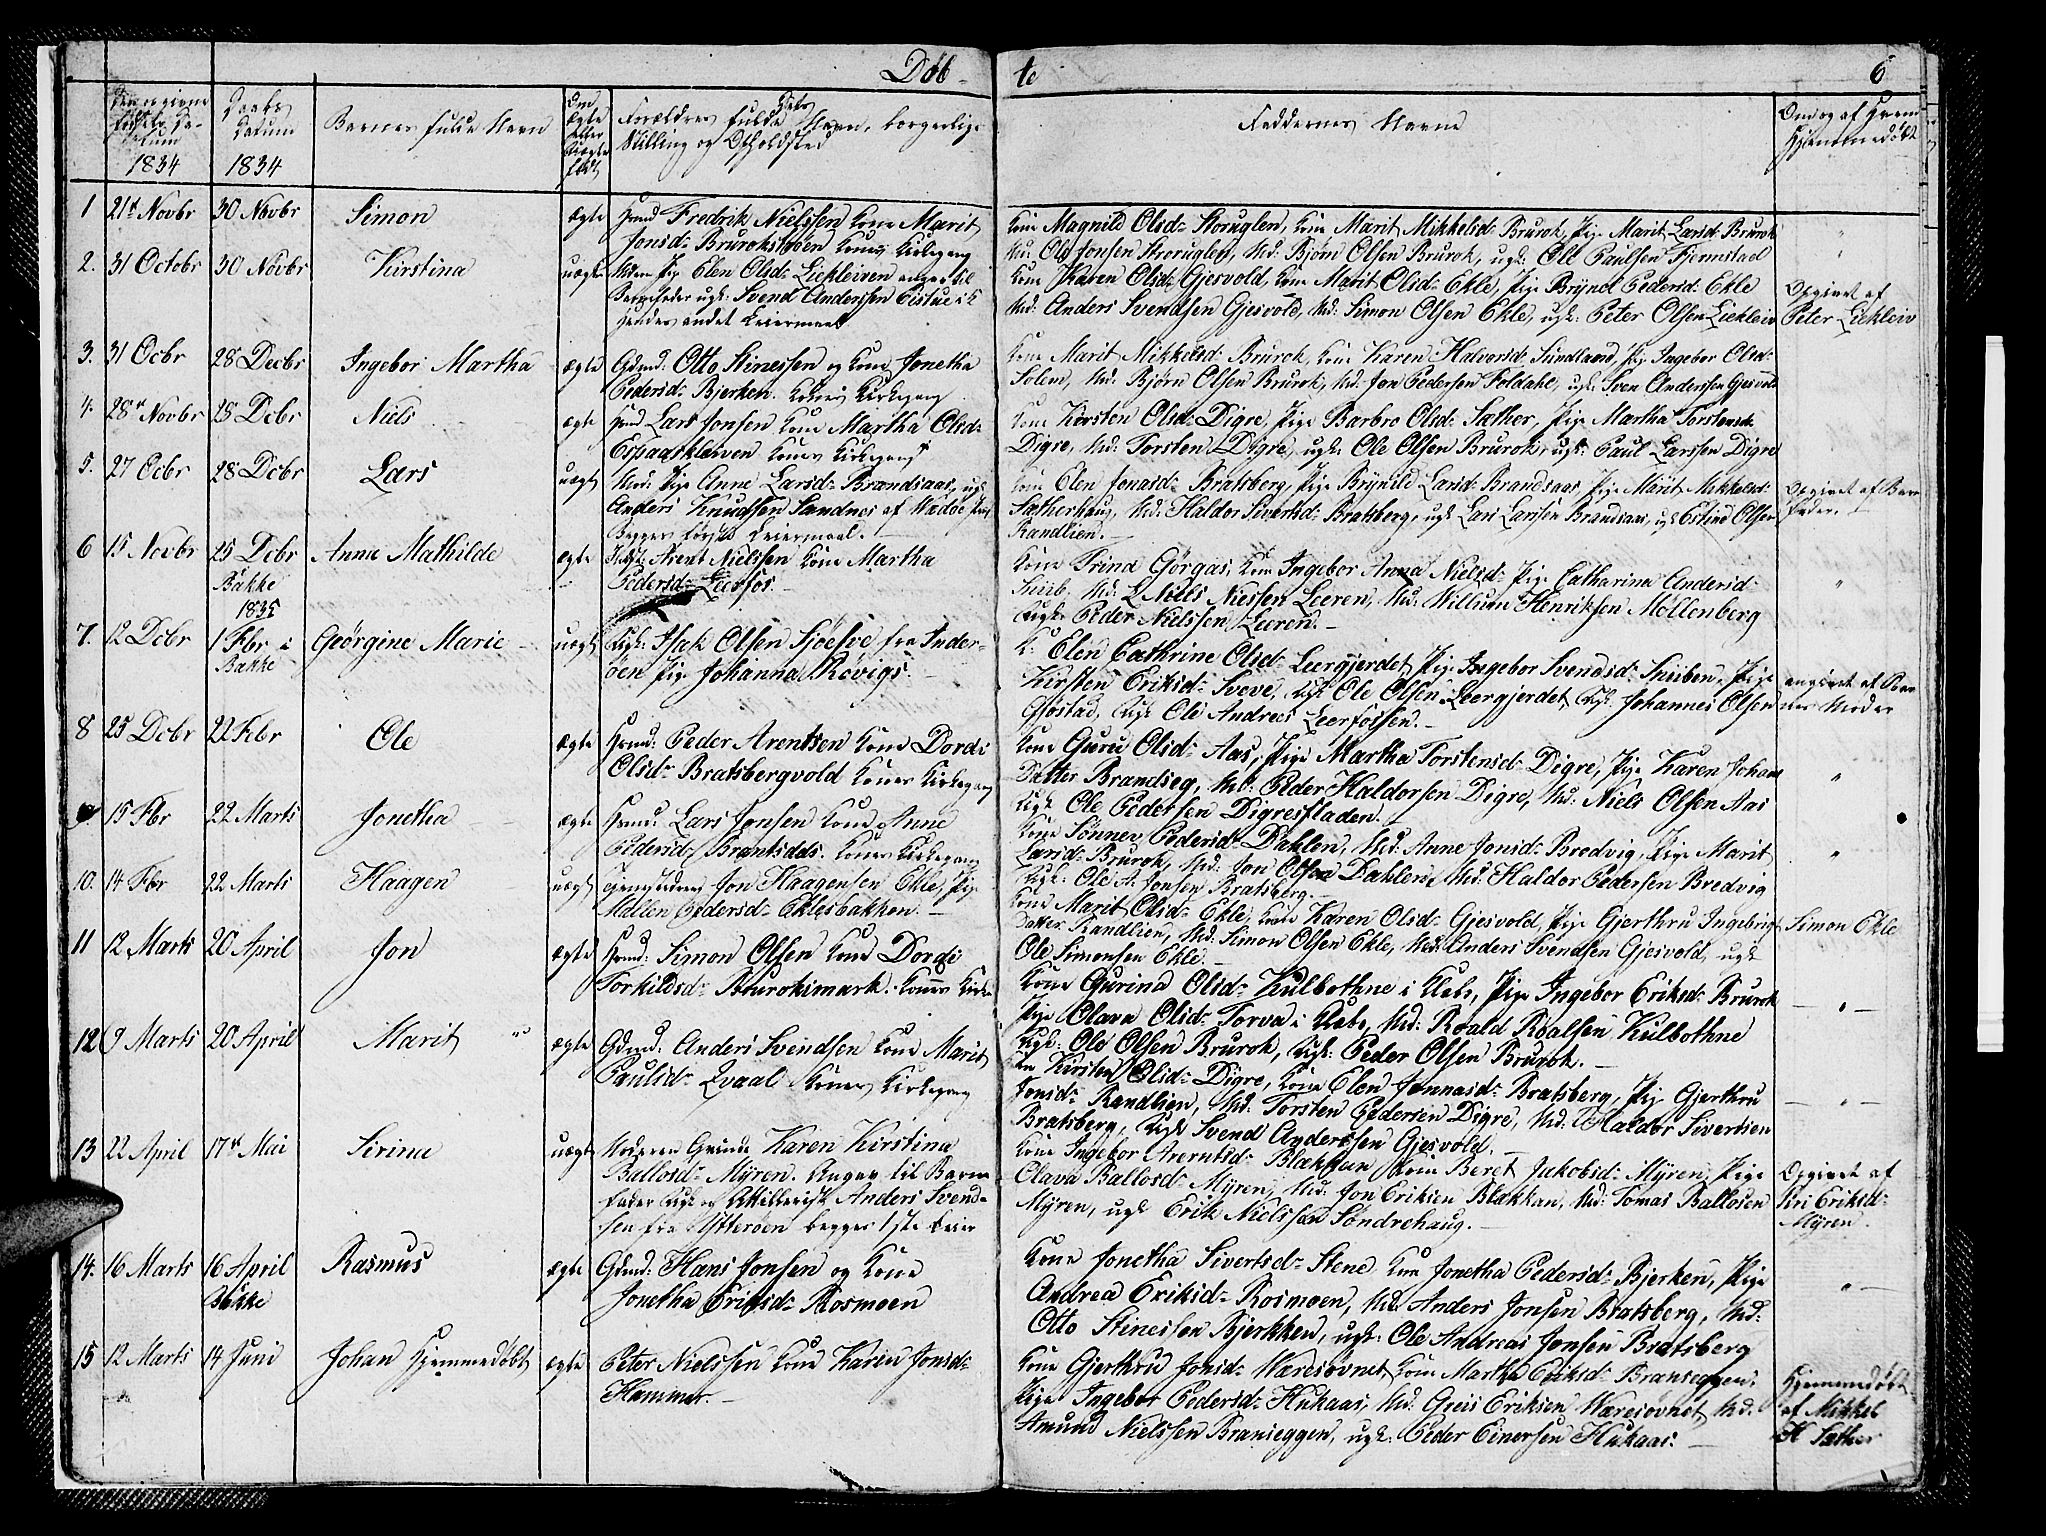 Døb-
te
6
Den opgivne
Fødsels Da-
tum
1834
Daabs
Datum
1834
Barnets fulde Navn
Om
ægte
eller
Uægte
født
Forældres fulde Navn, borgerlige
Stilling og Opholdsted
Faddernes Navne
Om og af Hvem
Hjemmedøbt
1 21de Novbr 30 Novbr Simon ægte Hmd Fredrik Nielssen Kone Marit
Jonsd: Brurokstøen Konens Kirkegang
Kone Magnild Olsd: Storuglen, Kone Marit Mikkelsd: Brurok, Pige Marit Larsd: Brurok
Md: Ole Jonsen Storuglen, Md: Bjørn Olsen Brurok, ugk: Ole Paulsen Fjernstad
2. 31 Octobr 30 Novbr Kirstina uægte Moder Pig Elen Olsd: Liekleiven angav til
Barnefader ugk: Svend Anderssen
Hendes andet Leiermaal
Kone Karen Olsd: Gjesvold, Kone Marit Olsd: Ekle, Pige Brynel Pedersd: Ekle
Md: Anders Svendsen Gjesvold, Md: Simon Olsen Ekle, ugk: Peter Olsen Liekleiv
Opgivet af
Peter Liekleiv
3. 31 Ocbr 28 Decbr Ingebor Martha ægte Gdmd: Otto Stinessen og Kone Jonetha
Pedersd: Bjerken. Konens Kirkegang
Kone Marit Mikkelsd: Brurok, Kone Karen Halvorsd: Sundland, Pige Ingebor Olsd:
Solem, Md: Bjørn Olsen Brurok, Md: Jon Pedersen Foldahl, ugk: Sven Anderssen Gjesvold
4. 28de Novbr 28 Dcbr Niels ægte Hmd Lars Jonsen Kone Martha Olsd:
Espaasklæven Konens Kirkegang
Kone Kirsten Olsd: Digre, Pige Barbro Olsd: Sæther, Pige Martha Torstensd:
Digre, Md: Torsten Digre, ugk: Ole Olsen Brurok, ugk: Paul Larssen Digre
5. 27 Ocbr 28 Dcbr Lars uægte Mod: Pige Anne Larsd: Brandsaas, ugk
Anders Knudsen Sandnes af
Begges første Leiermaal.
Kone Elen Jonasd: Bratsberg, Pige Brynild Larsd: Brandsaas, Pige Marit Mikkelsd:
Sætherhaug, Md: Haldor Sivertsd: Bratsberg, ugk Lars Larssen Brandsaas, ugk Estind Olsen
Randlien.
Opgivet af Barn
fader.
6 15 Novbr 25 Dcbr
Bakke Anna Mathilde ægte Arent Nielssen Kone Martha
Pedersd: Leerfos.
Kone Trina Görgas, Kone Ingebor Anna Nielsd: Pige Catharina Andersd:
Md: Niels Nielsen Leeren, Md: Willum Henriksen Möllenberg
Ugk: Peder Nielssen Leeren.
1835
7. 12 Dcbr 1 Fbr i
Bakke Geörgine Marie uægte Ugk: Isak Olsen fra Inder-
öen Pig Johanna Røvigs.
K: Elen Cathrine Olsd: Leergjerdet, Pige Ingebor Svendsd: Stuiben, Pige
Kirsten Eriksd: Sveve, Ugk Ole Olsen Leergjerdet, Ugk: Johannes Olsen
Gjöstad, Ugk Ole Andreas Leerfossen.
angivet af Bar
nets Moder
8 25 Dcbr 22 Fbr Ole ægte Hsmd: Peder Arentsen Kone Dordi
Olsd: Bratsbergvold Konens Kirkegang
Kone Guru Olsd: Aas, Pige Martha Torstensd: Digre, Pige Karen Johans
Datter Brandseg, Md: Peder Haldorsen Digre, Md: Niels Olsen Aas
Ugk Ole Pedersen Digresfladen.
9. 15 Fbr 22 Marts Jonetha ægte Hsmd: Lars Jonsen Kone Anne
Pedersd: Konens Kirkegang
Kone Sönnev Pedersd: Dahlen, Md: Anne Jonsd: Bredvig, Pige Marit
Larsd: Brurok, Md: Jon Olsen Dahlen, Md: Haldor Pedersen Bredvig
Ugk: Ole A. Jonsen Bratsberg.
10. 14 Fbr 22 Marts Haagen uægte Jon Haagensen Ekle, Pig
Mallen Pedersd: Eklesbakken.
Kone Marit Olsd: Ekle, Kone Karen Olsd: Gjesvold, Pige Gjerthru Ingebrigt
Datter Randlien, Md: Simon Olsen Ekle, Md: Anders Svendsen Gjesvold, ugk
Ole Simonsen Ekle.
Simon Ekle
11 12 Marts 20 April Jon ægte Hsmd: Simon Olsen Kone Dordi
Torkildsd: Bruroksmark. Konens Kirke
Kone Gurina Olsd: Kulbothne i Klæbo, Pige Ingebor Eriksd: Brurok
Pige Olava Olsd: Torva i Klæbo, Md: Roald Roalsen Kulbothne
Ugk: Ole Olsen Brurok, Ugk: Peder Olsen Brurok.
12 9 Marts 20 April Marit ægte Gdmd: Anders Svendsen Kone Marit
Paulsd: Qvaal Konens Kirkegang
Kone Kirsten Olsd: Digre, Kone Elen Jonnasd: Bratsberg, Pig Gjerthru
Jonsd: Randlien, Md: Torsten Pedersen Digre, Md: Haldor Sivertsen
Bratsberg, Ugk Svend Anderssen Gjesvold.
13 22 April 17de Mai Sirina uægte Moderen Qvinde Karen Kirstina
Ballosd: Myren. Angav til Barne
fader Ugk og Artillerist Anders Svend-
sen fra Ytteröen begges 1ste Leier
Kone Ingebor Arentsd: Blækkan Kone Beret Jakobsd: Myren, Pige
Olava Ballosd: Myren, Md: Jon Eriksen Blækkan, Md: Tomas Ballosen
Myren, ugk Erik Nielssen Söndrehaug.
Opgivet af
Siri Eriksd:
Myren.
14. 16 Marts 16 April
Bakke Rasmus ægte Gdmd: Hans Jonsen og Kone
Jonetha Eriksd: Rosmoen
Kone Jonetha Sivertsd: Stene Kone Jonetha Pedersd: Bjerken, Pige
Andrea Eriksd: Rosmoen, Md: Anders Jonsen Bratsberg, Md:
Otto Stinessen Bjerkken, ugk: Ole Andreas Jonsen Bratsberg
15 12 Marts 14 Juni Johan Hjemmedöbt ægte Peter Nielssen Kone Karen Jonsd:
Hammer.
Kone Gjerthru Jonsd: Waresövnet, Kone Martha Eriksd: Branseggen,
Pige Ingebor Pedersd: Hukaas, Md: Greis Eriksen Waresövnet, Md:
Amund Nielssen Branseggen, ugk: Peder Einersen Hukaas.
Hjemmedöbt
af Mikkel
H Sæther